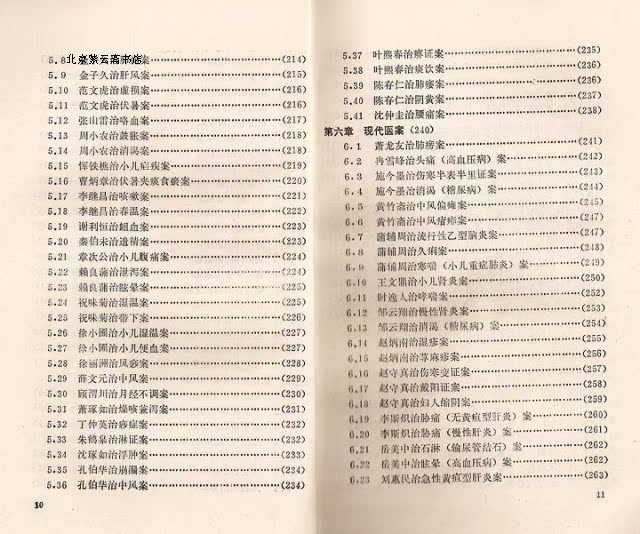 北京紫云斋书店
5.8 案 (214)
5.9 金子久治肝风案 (215)
5.10 范文虎治虚损案 (216)
5.11 范文虎治伏暑案 (216)
5.12 张山雷治咯血案 (217)
5.13 周小农治鼓胀案 (218)
5.14 周小农治消渴案 (218)
5.15 恽铁樵治小儿痁疾案 (219)
5.16 曹炳章治伏暑夹痰食瘀案 (220)
5.17 李继昌治咳嗽案 (221)
5.18 李继昌治春温案 (222)
5.19 谢利恒治衄血案 (223)
5.20 秦伯未治遗精案 (223)
5.21 章次公治小儿腹痛案 (224)
5.22 赖良蒲治泄泻案 (224)
5.23 赖良蒲治眩晕案 (225)
5.24 祝味菊治湿温案 (225)
5.25 祝味菊治带下案 (226)
5.26 徐小圃治小儿湿温案 (227)
5.27 徐小圃治小儿便血案 (227)
5.28 徐丽洲治风痧案 (228)
5.29 薛文元治中风案 (229)
5.30 顾渭川治月经不调案 (230)
5.31 萧琢如治燥咳兼泻案 (231)
5.32 丁仲英治痧痘案 (232)
5.33 朱鹤皋治淋证案 (233)
5.34 沈琢如治浮肿案 (233)
5.35 孔伯华治崩漏案 (234)
5.36 孔伯华治中风案 (234)
10
5.37 叶熙春治痹证案 (235)
5.38 叶熙春治痰饮案 (236)
5.39 陈存仁治肺痿案 (236)
5.40 陈存仁治阴黄案 (237)
5.41 沈仲圭治腰痛案 (238)
第六章 现代医案 (240)
6.1 萧龙友治肺痨案 (241)
6.2 冉雪峰治头痛（高血压病）案 (242)
6.3 施今墨治伤寒半表半里证案 (243)
6.4 施今墨治消渴（糖尿病）案 (244)
6.5 黄竹斋治中风偏瘫案 (245)
6.6 黄竹斋治中风瘖痱案 (247)
6.7 蒲辅周治流行性乙型脑炎案 (247)
6.8 蒲辅周治久痢案 (248)
6.9 蒲辅周治寒喘（小儿重症肺炎）案 (249)
6.10 王文鼎治小儿肾炎案 (250)
6.11 时逸人治哮喘案 (252)
6.12 邹云翔治慢性肾炎案 (253)
6.13 邹云翔治消渴（糖尿病）案 (254)
6.14 赵炳南治湿疹案 (255)
6.15 赵炳南治荨麻疹案 (256)
6.16 赵守真治伤寒变证案 (257)
6.17 赵守真治戴阳证案 (258)
6.18 赵守真治妇人缩阴案 (259)
6.19 李斯炽治胁痛（无黄疸型肝炎）案 (260)
6.20 李斯炽治胁痛（慢性肝炎）案 (261)
6.21 岳美中治石淋（输尿管结石）案 (262)
6.22 岳美中治眩晕（高血压病）案 (262)
6.23 刘惠民治急性黄疸型肝炎案 (263)
11